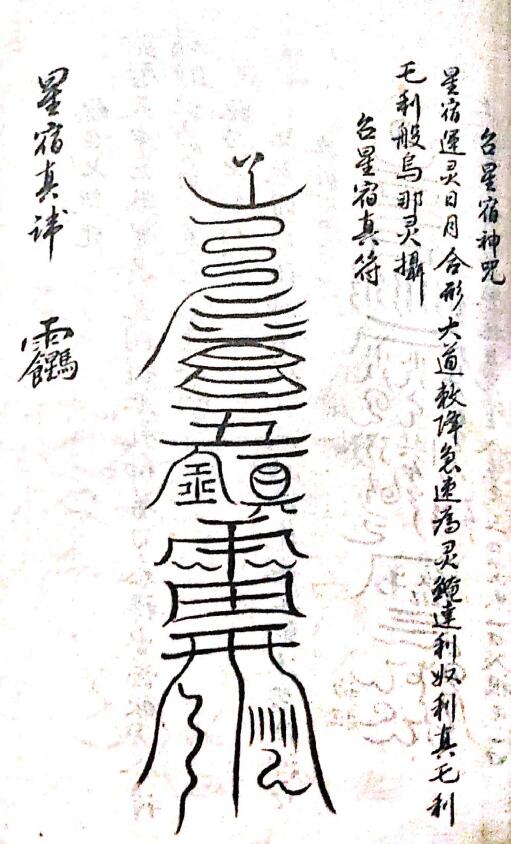 台星宿神咒
星宿運灵日月合形大道敕降急速為灵鏡達利奴利真乇利
乇利般烏那灵攝
台星宿真符
五
雷
星宿真讳